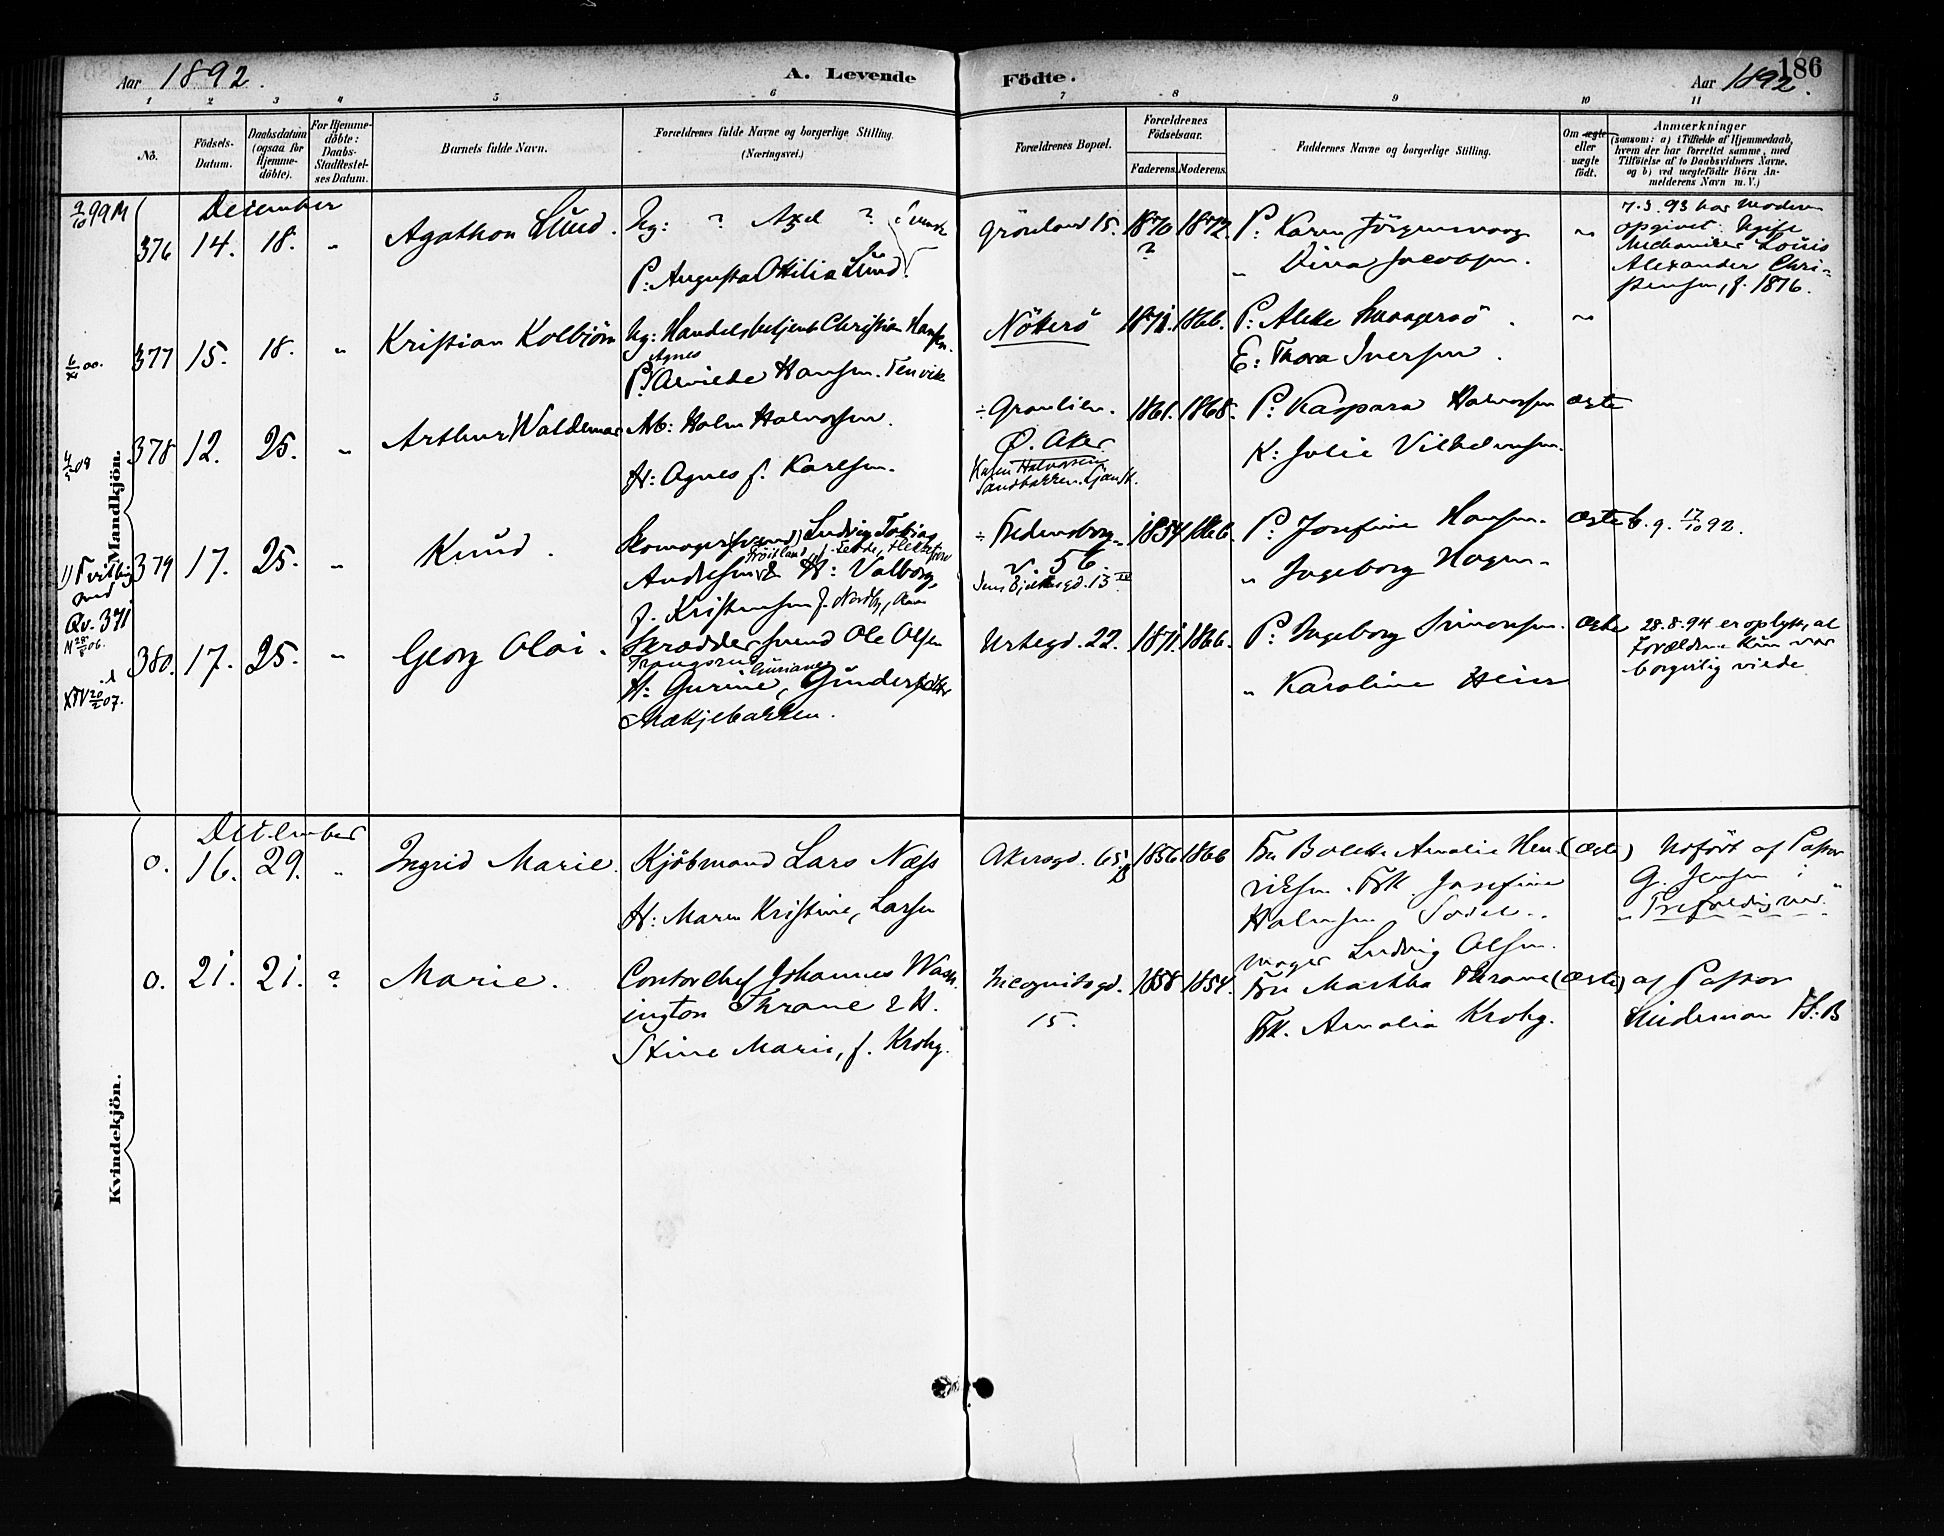 Aar 1892.
A. Levende
Födte.
Aar 1892.
186
1 2 3 4 5 6 7 8 9 10 11
No.
Födsels-
Datum.
Daabsdatum
(ogsaa for
Hjemme-
döbte).
For Hjemme-
döbte:
Daabs-
Stadfæstel-
ses Datum.
Barnets fulde Navn.
Forældrenes fulde Navne og borgerlige Stilling.
(Næringsvei.)
Forældrenes Bopæl.
Forældrenes
Födselsaar.
Faderens. Moderens.
Faddernes Navne og borgerlige Stilling.
Om ægte
eller
uægte
födt.
Anmærkninger
(saasom: a) i Tilfælde af Hjemmedaab,
hvem der har forrettet samme, med
Tilföielse af to Daabsvidners Navne.
og b) ved uægtefödte Börn An-
melderens Navn m. V.)
Mandkjön.
December
376 14. 18. " Agathon Lund. Ug: ? Axel ?
P: Augusta Ottilia Lund
Grönland 15. 1870 ? 1872. P: Karen Jörgensvaag
" Dina Jacobsen.
7.3.93 har Moderen
opgivet: Ugift
Mechaniker Louis
Alexander Chri-
stensen, f. 1876.
377 15. 18. " Kristian Kolbjörn Ug: Handelsbetjent Christian Hansen.
Agnes
P: Alvilde Hansen.
Nöterö 1871. 1866.
E: Thora Iversen.
378 12. 25. " Arthur Waldemar Ab: Halvorsen.
H: Agnes f. Karlsen.
Ø. Aker
1861. 1868. P: Kaspara Halvorsen ægte
K: Julie Vilhelmsen.
Tvilling
med
Qv. 371
379 17. 25. " Knud. Skomager(svend) Ludvig Tobias
Andresen & H: Valborg,
f. Kristensen
Fredensborg-
v. 56.
1854 1866. P: Josefine Hansen. ægte b. 9. 17/10 92.
" Ingeborg Hagen.
380. 17. 25. " Georg Olai. Skræddersvend Ole Olsen
H: Gurine, Gunders
Mækjebakken.
Urtegd. 22. 1871. 1866. P: Ingeborg Simonsen. ægte
" Karoline Heier
28.8.94 er oplyst, at
Forældrene kun var
borgerlig viede
Kvindekjön.
December
0. 16. 29. " Ingrid Marie. Kjöbmand Lars Næss
H: Maren Kristine, Larsen
Akersgd. 65 B 1856 1866 Fru Bolette Amalie Hen- (ægte)
riksen. Frk Josefine
Halvorsen Sadel-
mager Ludvig Olsen.
Udfört af Pastor
G. Jensen i
"Trefoldighed"
0. 21. 21. ? Marie. Contorchef Johannes Wash-
ington Thrane & H.
Stine Marie, f. Krohg.
Incognitogd.
15.
1858 1854. Fru Martha Thrane (ægte)
Frk. Amalia Krohg.
af Pastor
Lindeman H:B